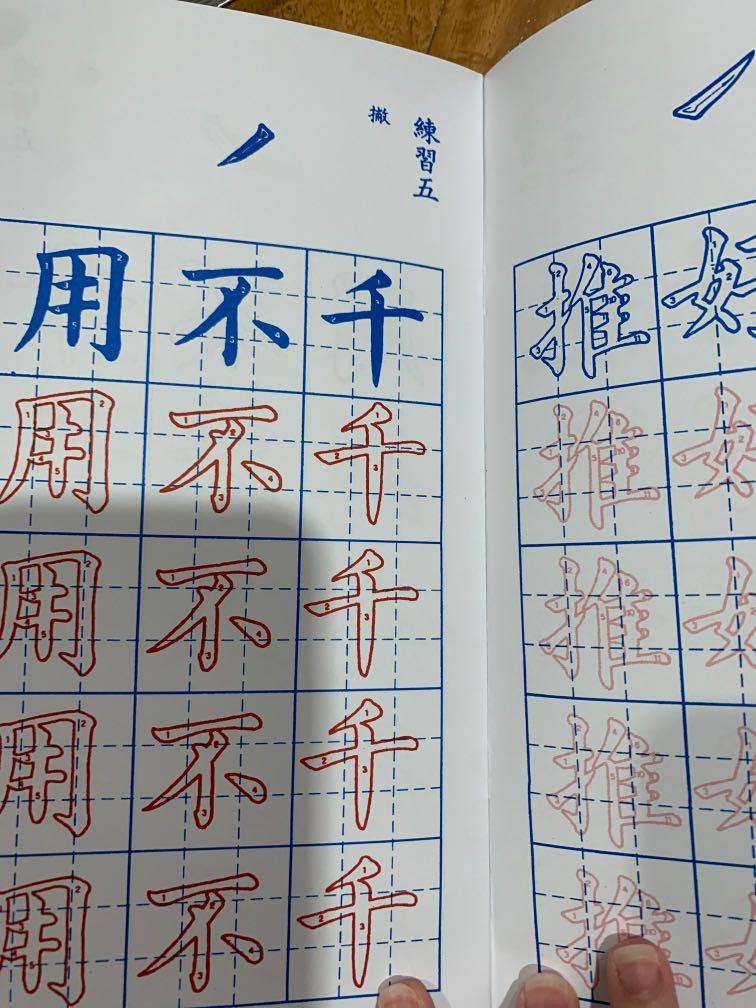 練習五
撇
千不用
千不用
千不用
千不用
千不用
推
推
推
推
推